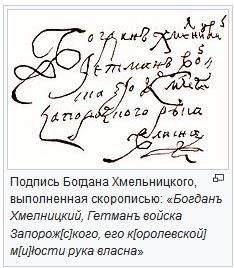 Богданъ
Гетманъ
рука
власна
Подпись Богдана Хмельницкого,
выполненная скорописью: «Богданъ
Хмелницкий, Гетманъ войска
Запорож[с]кого, его к[оролевской]
м[и]юсти рука власна»